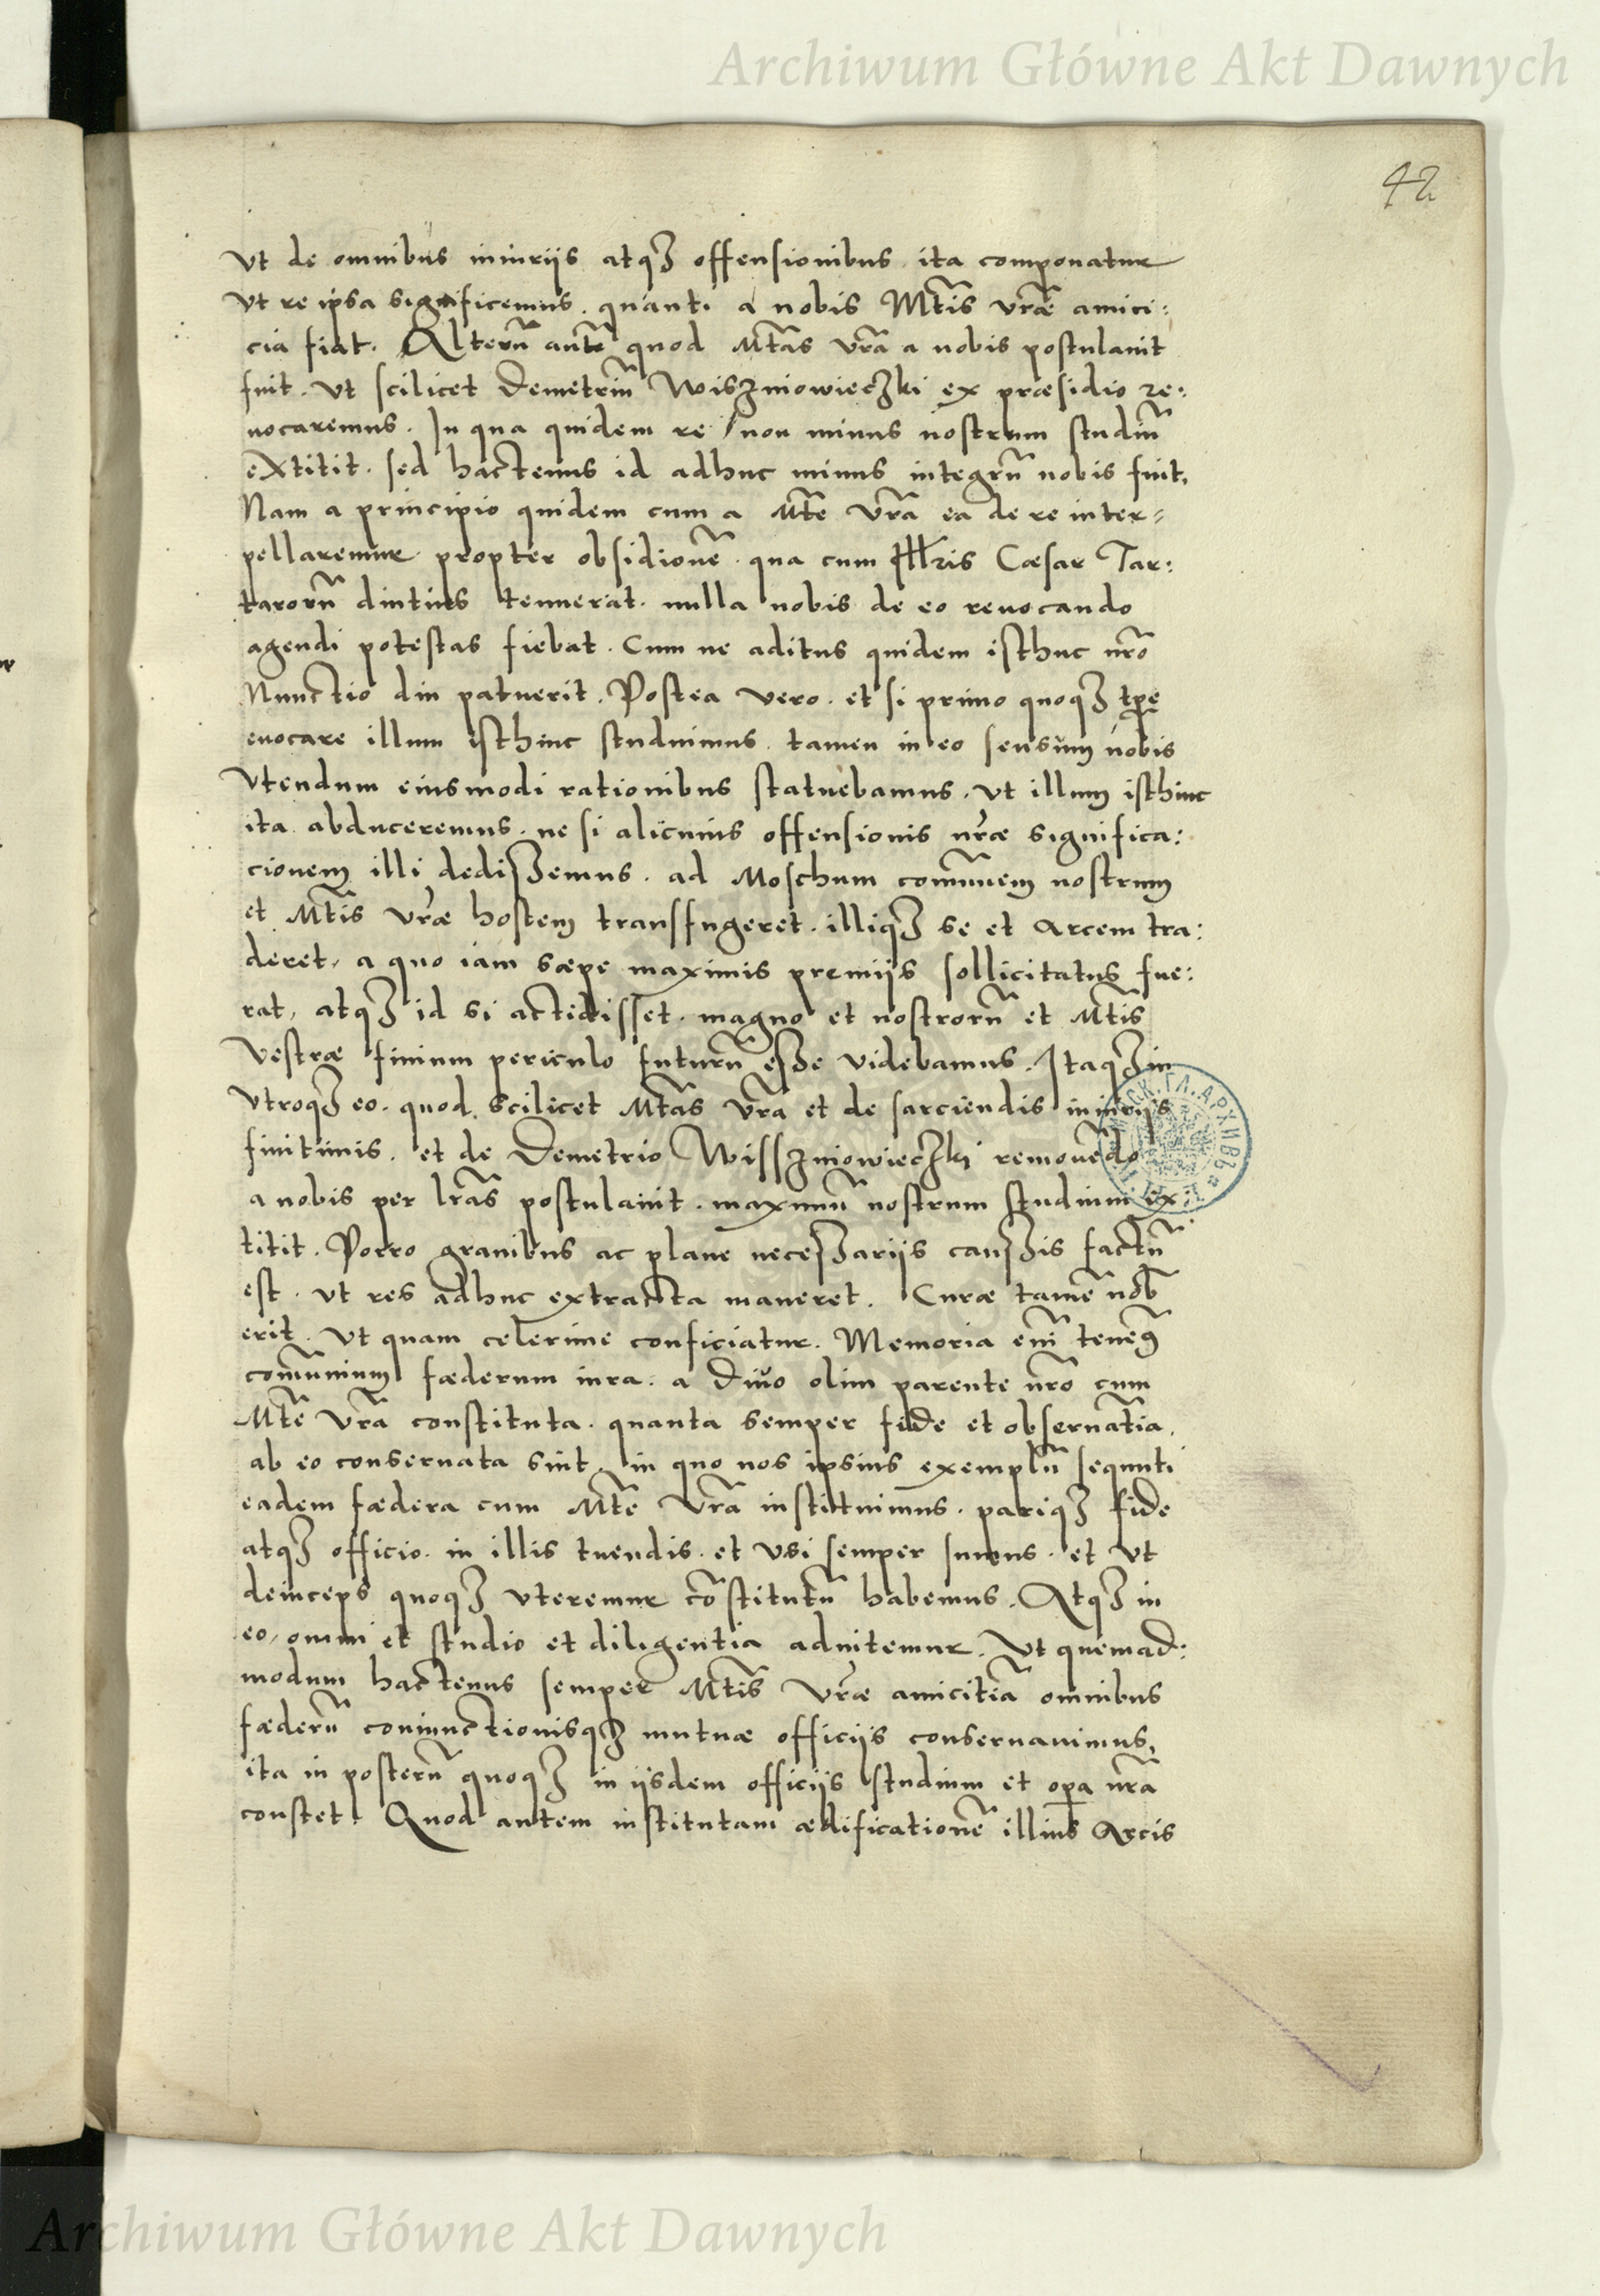 Archiwum Główne Akt Dawnych
42
Vt de omnibus iniuriis atqȝ offensionibus ita componatur
Vt re ipsa significemus. quanti a nobis Mtis vrae amici:
cia fiat. Alterũ autẽ quod Mtas vra a nobis postulauit
fuit. Vt scilicet Demetriũ Wiszniowieczki ex præsidio re:
uocaremus. In qua quidem re / non minus nostrum studiũ
extitit. sed hactenus id adhuc minus integrũ nobis fuit.
Nam a principio quidem cum a Mte vra ea de re inter-
pellaremur propter obsidionẽ. qua eum Illris Cæsar Tar:
tarorũ diutius tenuerat. nulla nobis de eo reuocando
agendi potestas fiebat. Cum ne aditus quidem isthuc nro
Nunctio diu patuerit. Postea vero. et si primo quoqȝ tpe
euocare illum isthinc studuimus. tamen in eo sensum nobis
Vtendum eiusmodi rationibus statuebamus. Vt illum isthinc
ita abduceremus. ne si alicuius offensionis nræ significa:
cionem illi dedissemus. ad Moschum comũnem nostrum
et Mtis vræ hostem transfugeret. illiqȝ se et Arcem tra:
deret, a quo iam sæpe maximis premiis sollicitatus fue:
rat, atqȝ id si actidisset. magno et nostrorũ et Mtis
Vestræ finium periculo futurũ esse videbamus. Itaqȝ in
Vtroqȝ eo. quod scilicet Mtas vra et de sarciendis iniuriis
finitimis. et de Demetrio Wisszniowieczki remouẽdo
a nobis per lras postulauit. maximũ nostrum studium ex:
titit. Porro grauibus ac plane necessariis caussis factũ
est. Vt res adhuc extracta maneret. Curæ tamẽ nob
erit. Vt quam celerime conficiatur. Memoria enĩ tenemꝰ
comũnium fæderum iura. a Diuo olim parente nro cum
Mte vra constituta. quanta semper fide et obseruatia.
ab eo conseruata sint. in quo nos ipsius exemplũ sequuti
eadem fædera cum Mte vra instituimus. pariqȝ fide
atqȝ officio. in illis tuendis. et Vsi semper sumus. et Vt
deinceps quoqȝ Vteremur cõstitutũ habemus. Atqȝ in
eo, omni et studio et diligentia adnitemur. Vt quemad:
modum hactenus semper Mtis vræ amicitiã omnibus
fæderũ coniunctionisqȝ mutuæ officiis conseruauimus,
ita in posterũ quoqȝ in iisdem officiis studium et opa nra
constet. Quod autem institutam ædificationẽ illius Arcis
Archiwum Główne Akt Dawnych